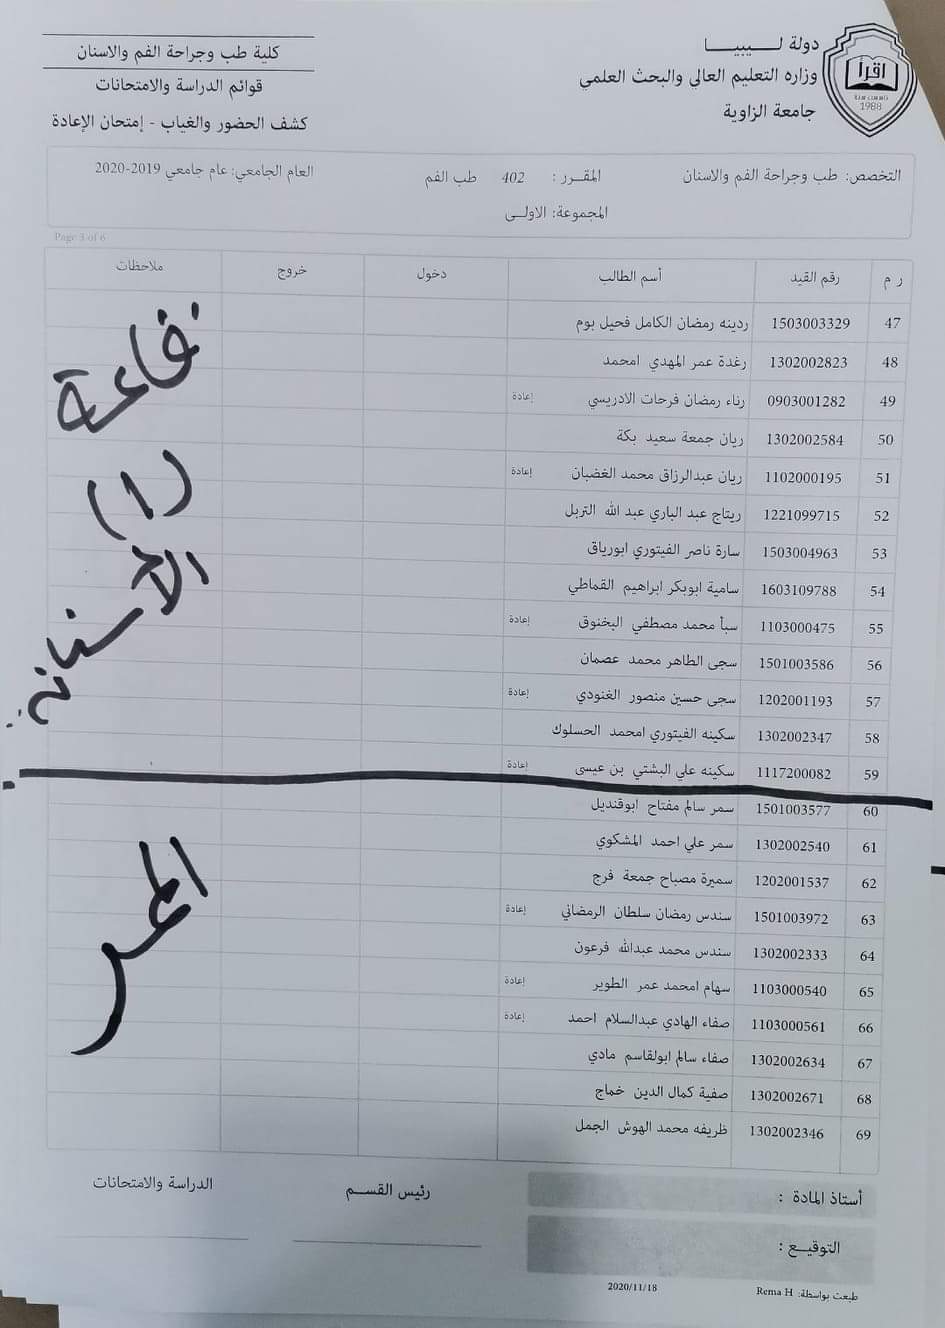 دولة لـــيبيـــا
وزاره التعليم العالي والبحث العلمي
جامعة الزاوية
اقرأ
1988
كلية طب وجراحة الفم والاسنان
قوائم الدراسة والامتحانات
كشف الحضور والغياب - إمتحان الإعادة
التخصص: طب وجراحة الفم والاسنان المقـرر : 402 طب الفم العام الجامعي: عام جامعي 2019-2020
المجموعة: الاولـى
Page 3 of 6
ر م رقم القيد أسم الطالب دخول خروج ملاحظات
47 1503003329 ردينه رمضان الكامل فحيل بوم
48 1302002823 رغدة عمر المهدي امحمد
49 0903001282 رناء رمضان فرحات الادريسي إعادة
50 1302002584 ريان جمعة سعيد بكة
51 1102000195 ريان عبدالرزاق محمد الغضبان إعادة
52 1221099715 ريتاج عبد الباري عبد الله التربل
53 1503004963 سارة ناصر الفيتوري ابورياق
54 1603109788 سامية ابوبكر ابراهيم القماطي
55 1103000475 سبأ محمد مصطفي البخنوق إعادة
56 1501003586 سجى الطاهر محمد عصمان
57 1202001193 سجى حسين منصور الغنودي إعادة
58 1302002347 سكينه الفيتوري امحمد الحسلوك
59 1117200082 سكينه علي البشتي بن عيسى إعادة
60 1501003577 سمر سالم مفتاح ابوقنديل
61 1302002540 سمر علي احمد المشكوي
62 1202001537 سميرة مصباح جمعة فرج
63 1501003972 سندس رمضان سلطان الرمضاني إعادة
64 1302002333 سندس محمد عبدالله فرعون
65 1103000540 سهام امحمد عمر الطوير إعادة
66 1103000561 صفاء الهادي عبدالسلام احمد إعادة
67 1302002634 صفاء سالم ابولقاسم مادي
68 1302002671 صفية كمال الدين خماج
69 1302002346 ظريفه محمد الهوش الجمل
قاعة
(1)
الأسنان
أستاذ المادة : رئيس القســم الدراسة والامتحانات
التوقيـع :
طبعت بواسطة: Rema H 2020/11/18